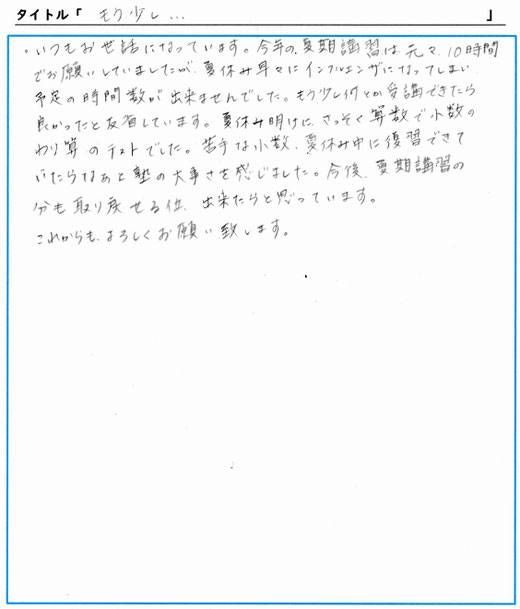 タイトル「 もう少し... 」
・いつもお世話になっています。今年の夏期講習は元々、10時間
でお願いしていましたが、夏休み早々にインフルエンザになってしまい
予定の時間数が出来ませんでした。もう少し何とか受講できたら
良かったと反省しています。夏休み明けに、さっそく算数で小数の
わり算のテストでした。苦手な小数、夏休み中に復習できて
いたらなぁと塾の大事さを感じました。今後、夏期講習の
分も取り戻せる位、出来たらと思っています。
これからも、よろしくお願い致します。